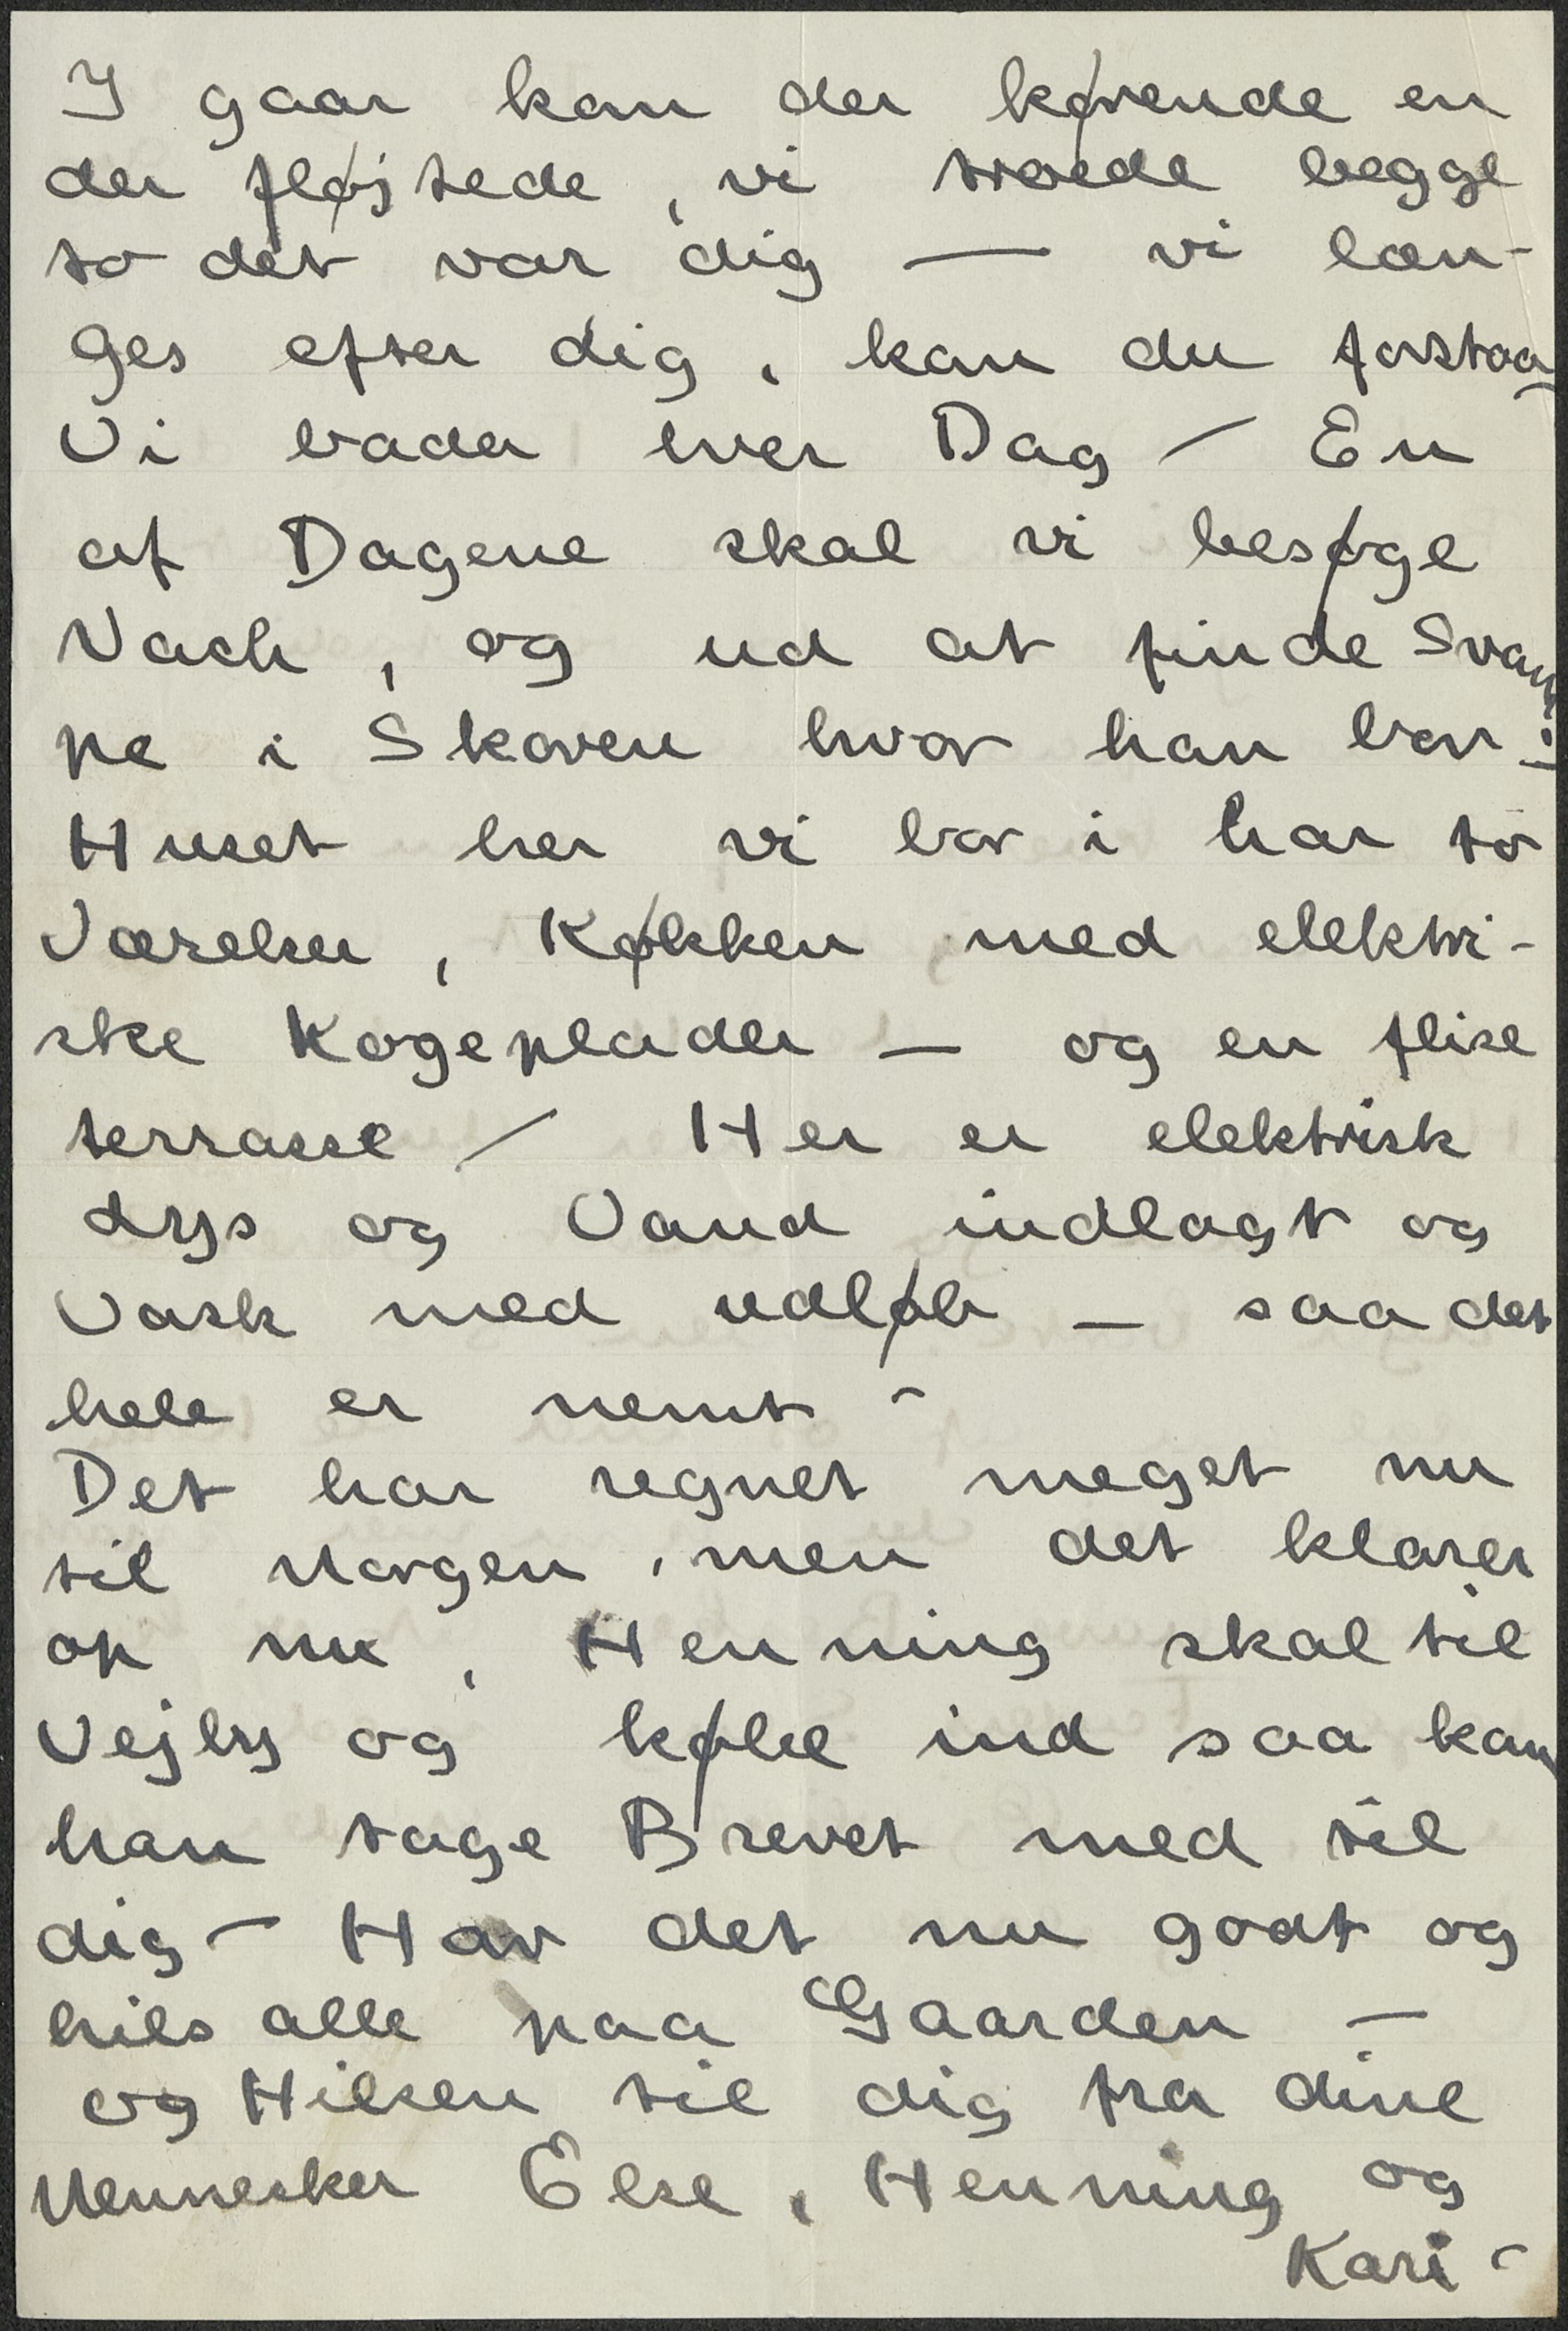 I gaar kom der kørende en
der fløjtede, vi troede begge
to det var dig — vi læn-
ges efter dig, kan du forstaa
Vi bader hver Dag – En
af Dagene skal vi besøge
Vach, og ud at finde Svam
pe i Skoven hvor han bor i
Huset her vi bor i har to
Værelser, Køkken med elektri-
ske Kogeplader — og en flise
terrasse / Her er elektrisk
Lys og Vand indlagt og
Vask med udløb — saa det
hele er nemt –
Det har regnet meget nu
til Morgen, men det klarer
op nu, Henning skal til
Vejby og købe ind saa kan
han tage Brevet med til
dig – Hav det nu godt og
hils alle paa Gaarden —
og Hilsen til dig fra dine
Mennesker Else, Henning og
Kari –